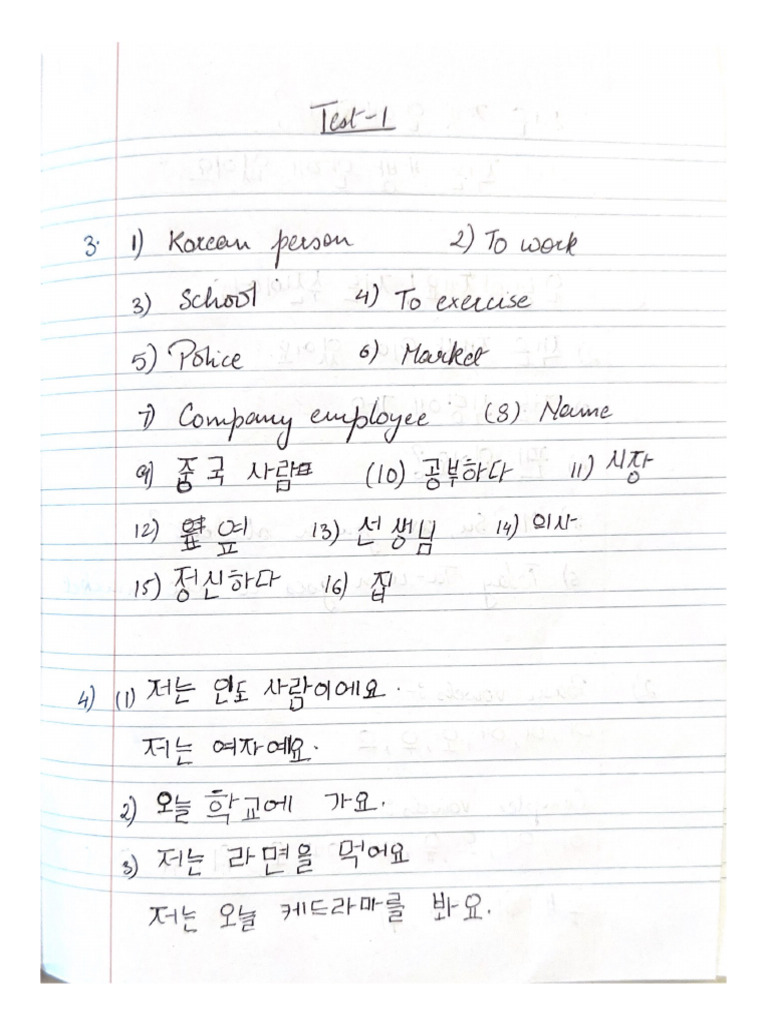 Test-1
3. 1) Korean person 2) To work
3) School 4) To exercise
5) Police 6) Market
7) Company employee (8) Name
9) 중국 사람 (10) 공부하다 11) 시장
12) 옆 13) 선생님 14) 의사
15) 정신하다 16) 집
4) (1) 저는 인도 사람이에요.
저는 여자예요.
2) 오늘 학교에 가요.
3) 저는 라면을 먹어요
저는 오늘 케드라마를 봐요.